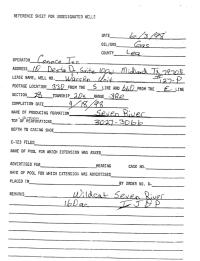 REFERENCE SHEET FOR UNDESIGNATED WELLS
DATE 6/3/98
OIL/GAS Gas
COUNTY Lea
OPERATOR Conoco Inc
ADDRESS 10 Desta Dr, Suite 100W Midland Tx 79705
LEASE NAME, WELL NO. Warren Unit #127-P
FOOTAGE LOCATION 330 FROM THE S LINE 660 FROM THE E LINE
SECTION TOWNSHIP 20s RANGE 38e
COMPLETION DATE
NAME OF PRODUCING FORMATION Seven River
TOP OF PERFORATIONS 3027-3066
DEPTH TO CASING SHOE
C-123 FILED
NAME OF POOL FOR WHICH EXTENSION WAS ASKED
ADVERTISED FOR HEARING CASE NO.
NAME OF POOL FOR WHICH EXTENSION WAS ADVERTISED
PLACED IN BY ORDER NO. R-
REMARKS Wildcat Seven River